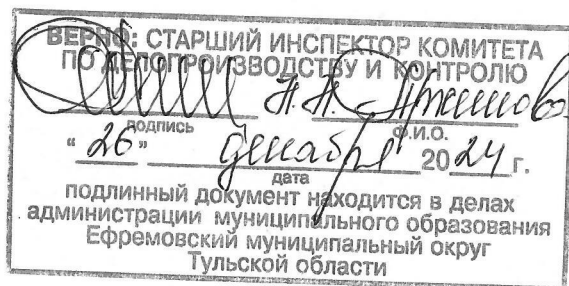 ВЕРНО: СТАРШИЙ ИНСПЕКТОР КОМИТЕТА
ПО ДЕЛОПРОИЗВОДСТВУ И КОНТРОЛЮ
Н.Н.
подпись Ф.И.О.
" 26 " декабря 2024 г.
дата
подлинный документ находится в делах
администрации муниципального образования
Ефремовский муниципальный округ
Тульской области